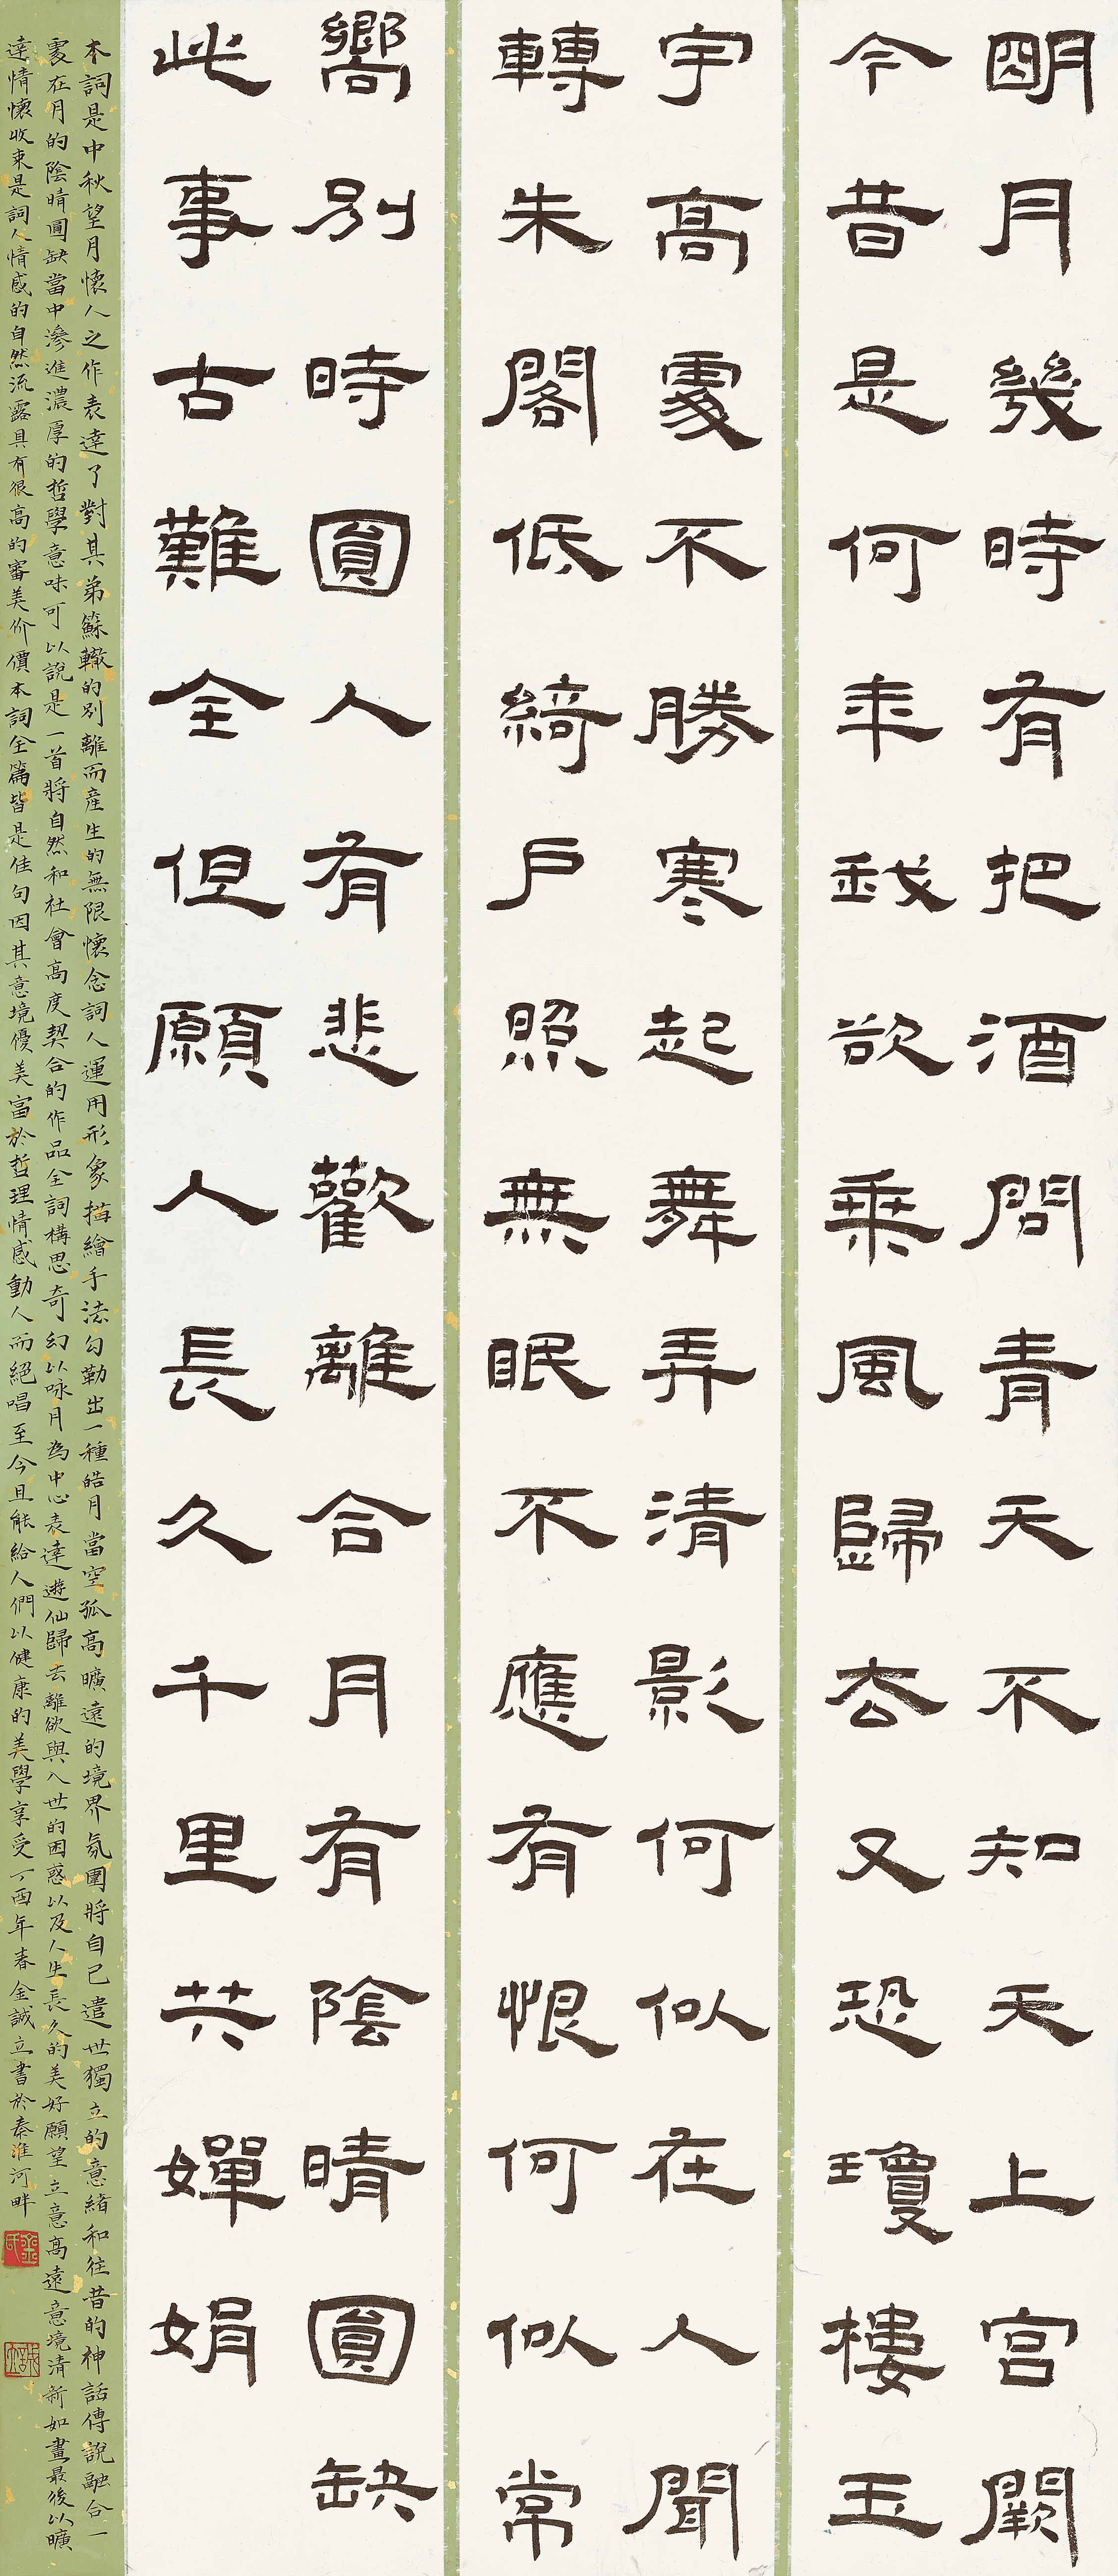 朙月幾時有把酒問青天不知天上宮闕
今昔是何年我欲乘風歸去又恐瓊樓玉
宇高處不勝寒起舞弄清影何似在人聞
轉朱閣低綺戶照無眠不應有恨何似常
嚮別時圓人有悲歡離合月有陰晴圓缺
此事古難全但願人長久千里共嬋娟
本詞是中秋望月懷人之作表達了對其弟蘇轍的別離而產生的無限懷念詞人運用形象描繪手法勾勒出一種皓月當空孤高曠遠的境界氛圍將自己遺世獨立的意緒和往昔的神話傳說融合一
處在月的陰晴圓缺當中滲進濃厚的哲學意味可以說是一首將自然和社會高度契合的作品全詞構思奇幻以咏月為中心表達遊仙歸去離欲與入世的困惑以及人生長久的美好願望立意高遠意境清新如畫最後以曠
達情懷收束是詞人情感的自然流露具有很高的審美价價本詞全篇皆是佳句因其意境優美富於哲理情感動人而絕唱至今且能給人們以健康的美學享受丁酉年春金誠立書於秦淮河畔
金氏
誠立